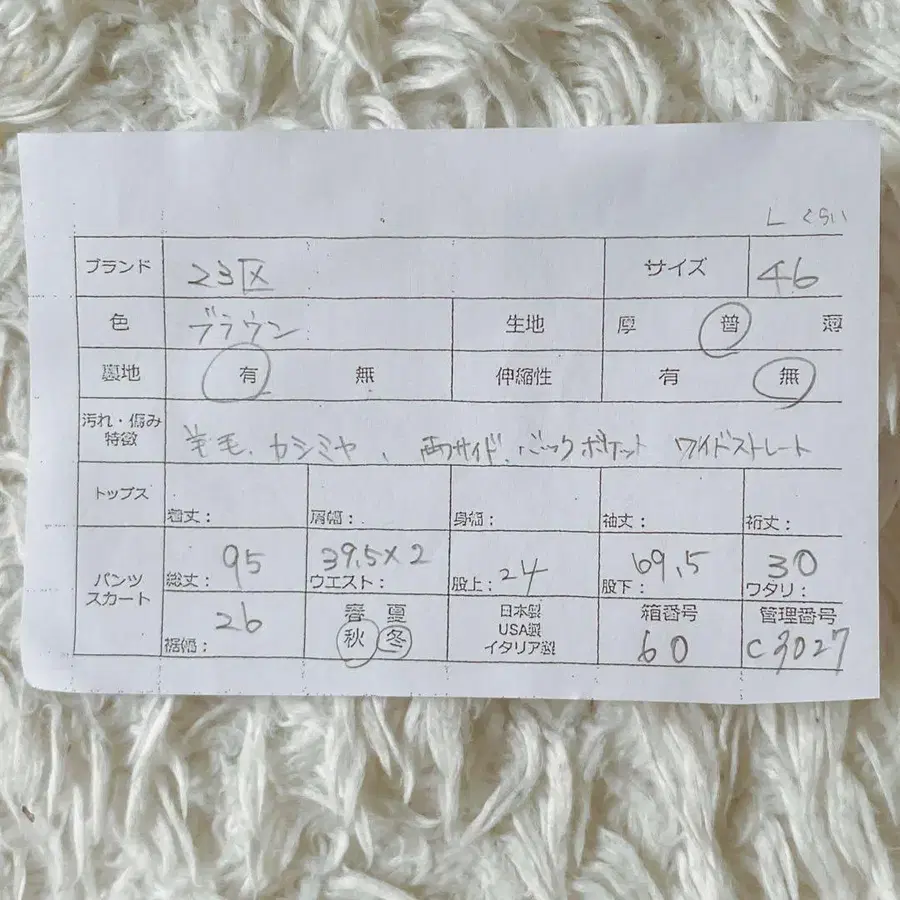 L くらい
ブランド 23区 サイズ 46
色 ブラウン 生地 厚 普 薄
裏地 有 無 伸縮性 有 無
汚れ・傷み
特徴 羊毛、カシミヤ、両サイド、バックポケット ワイドストレート
トップス 着丈： 肩幅： 身幅： 袖丈： 裄丈：
パンツ
スカート 総丈： 95 ウエスト： 39,5×2 股上： 24 股下： 69,5 ワタリ： 30
裾幅： 26 春 夏 秋 冬 日本製 USA製 イタリア製 箱番号 60 管理番号 C3027